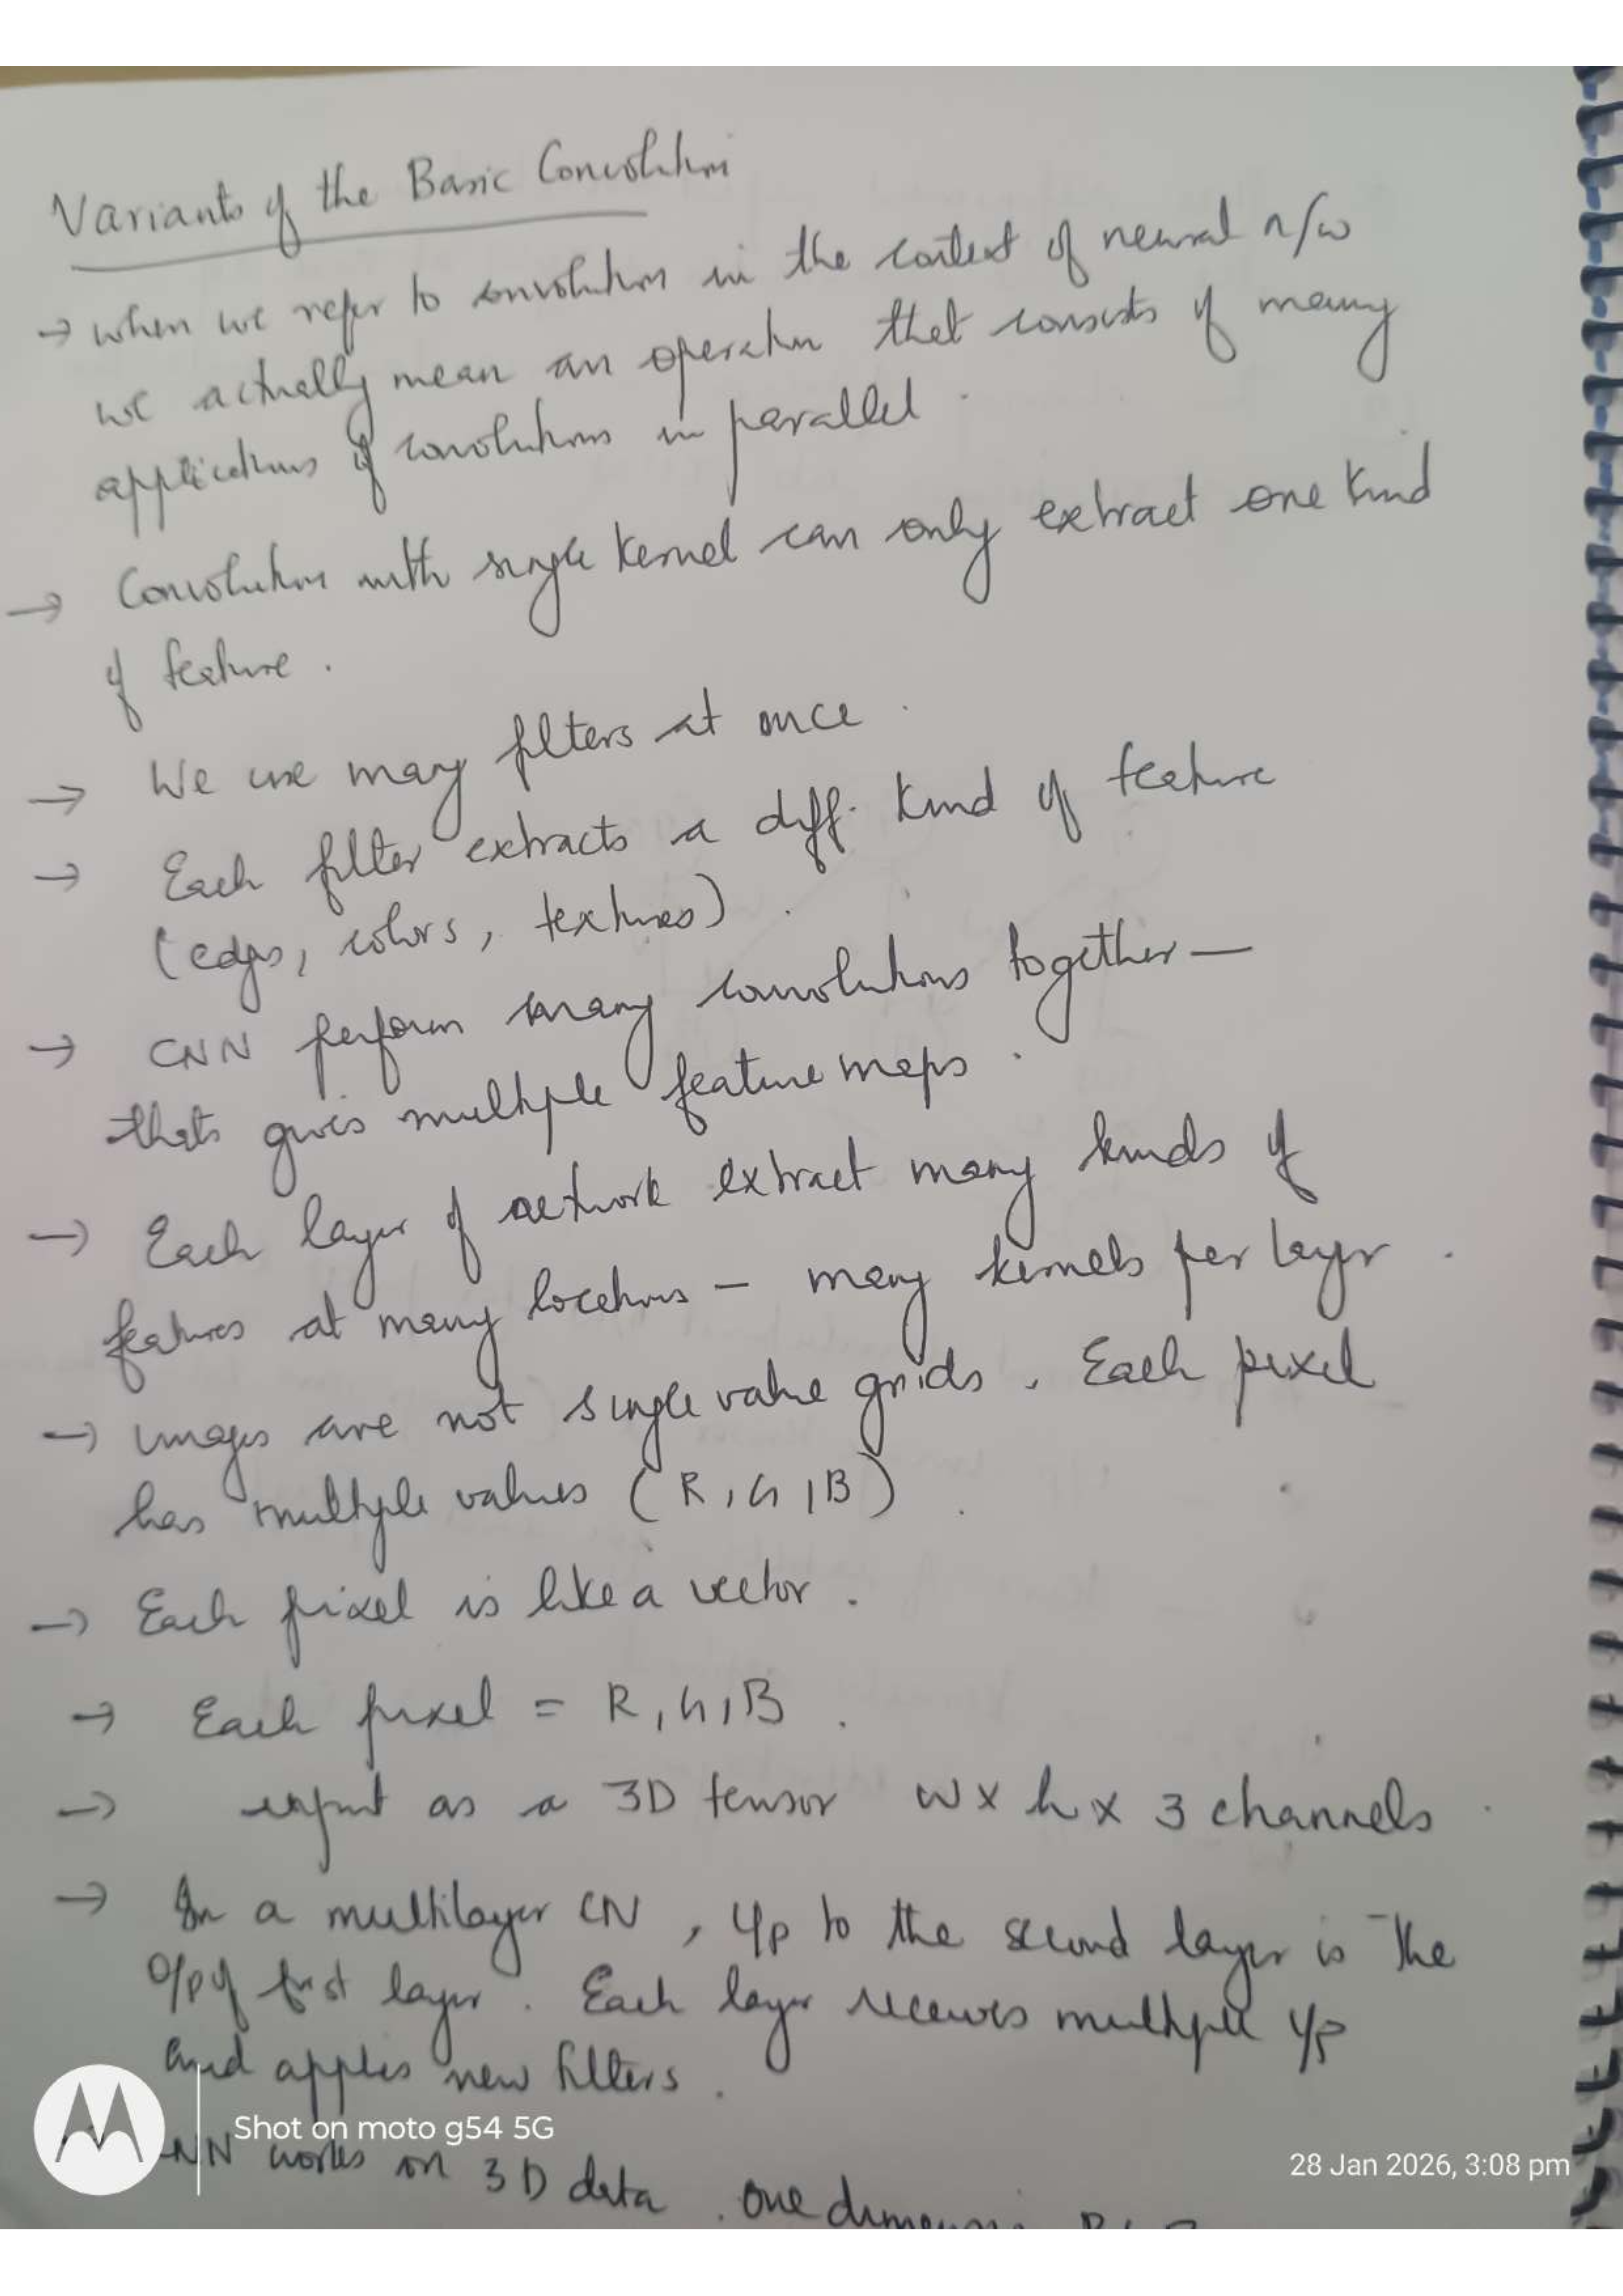 Variants of the Basic Convolution
→ when we refer to convolution in the context of neural n/w
we actually mean an operation that consists of many
applications of convolutions in parallel.
→ Convolution with single kernel can only extract one kind
of feature.
→ We use many filters at once.
→ Each filter extracts a diff. kind of feature
(edges, colors, textures).
→ CNN perform many convolutions together —
thats gives multiple feature maps.
→ Each layer of network extract many kinds of
features at many locations – many kernels per layer.
→ images are not single value grids. Each pixel
has multiple values (R, G, B).
→ Each pixel is like a vector.
→ Each pixel = R, G, B.
→ input as a 3D tensor w x h x 3 channels.
→ In a multilayer CN, i/p to the second layer is the
o/p of first layer. Each layer receives multiple i/p
and applies new filters.
Shot on moto g54 5G
NN works on 3D data. One
28 Jan 2026, 3:08 pm